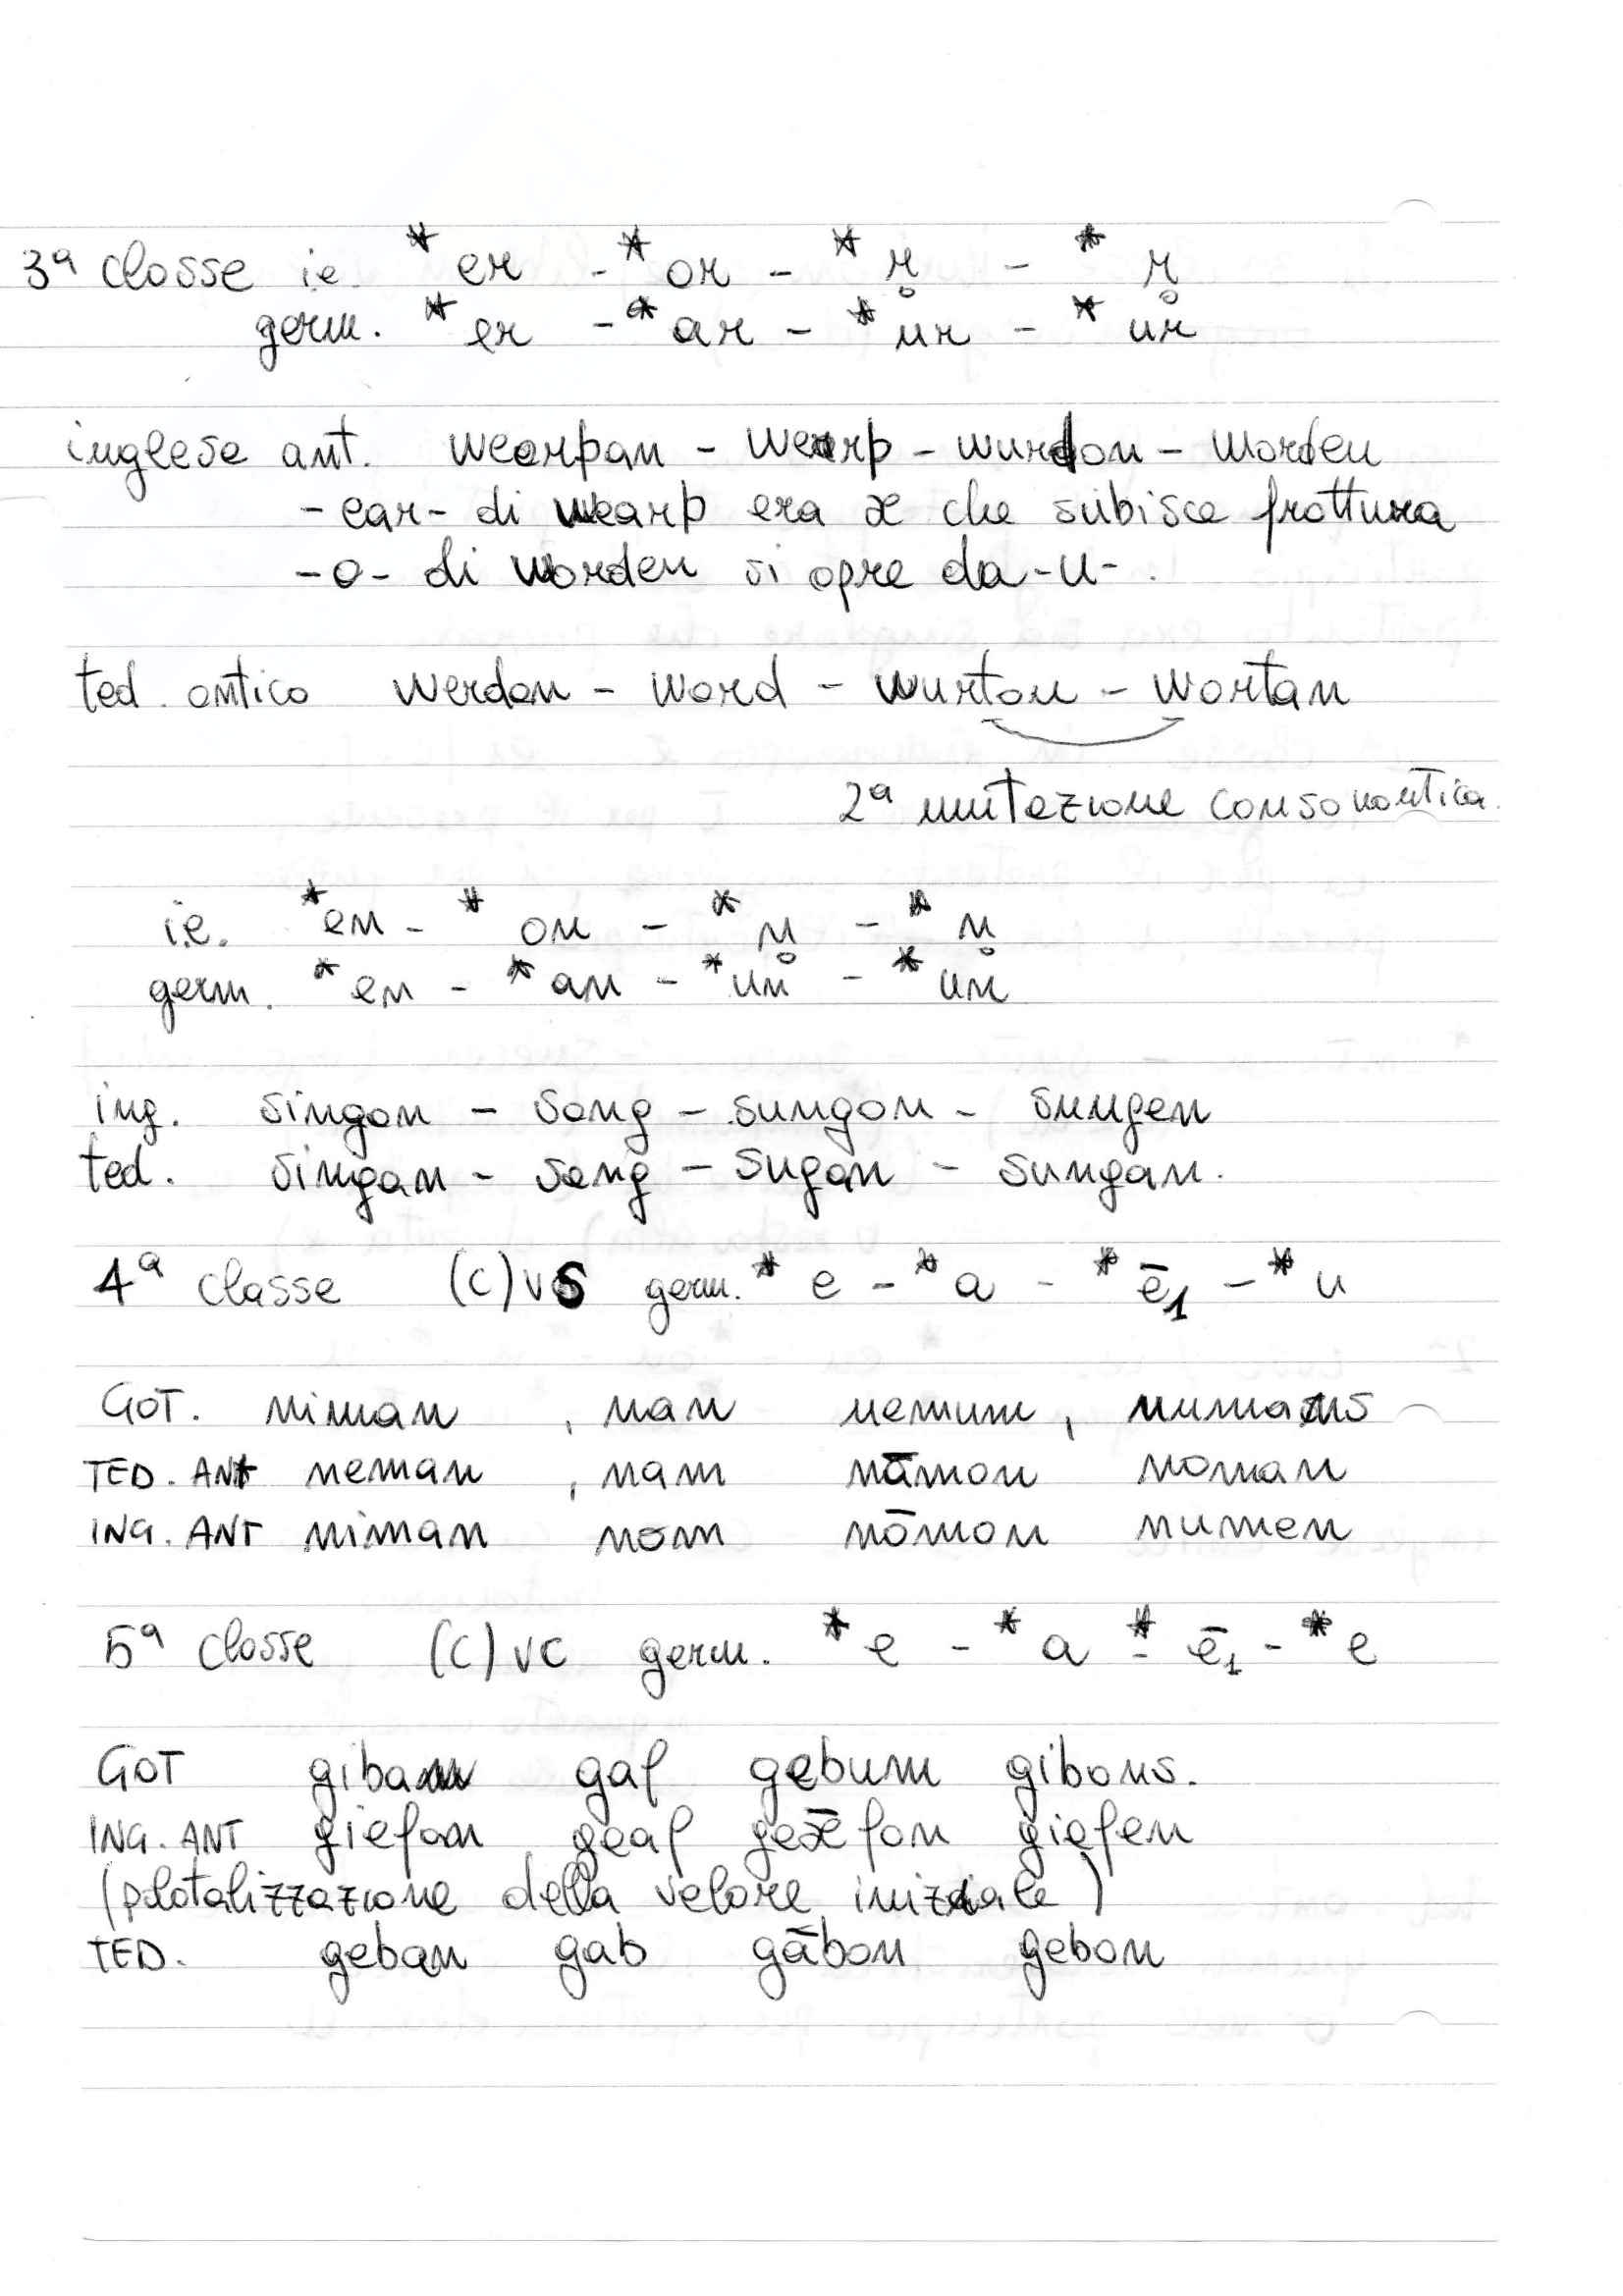 3ª classe ie. *er - *or - *r̥ - *r̥
germ. *er - *ar - *ur - *ur
inglese ant. weorþan - wearþ - wurdon - worden
-ear- di wearþ era æ che subisce frattura
-o- di worden si apre da -u- .
ted. antico werdan - ward - wurton - wortan
2ª mutazione consonantica.
i.e. *en - *on - *n̥ - *n̥
germ. *en - *an - *un - *un
ing. singan - song - sungon - sungen
ted. singan - sang - sugan - sungan.
4ª classe (c)vs germ. *e - *a - *ē₁ - *u
GOT. niman , nan nemum , numans
TED. ANT neman , nam nāmon noman
ING. ANT niman nom nōmon numen
5ª classe (c)vc germ. *e - *a - *ē₁ - *e
GOT giban gaf gebum gibans.
ING. ANT giefan geaf geǣfon giefen
(platalizzazione della velare iniziale)
TED. geban gab gābon gebon